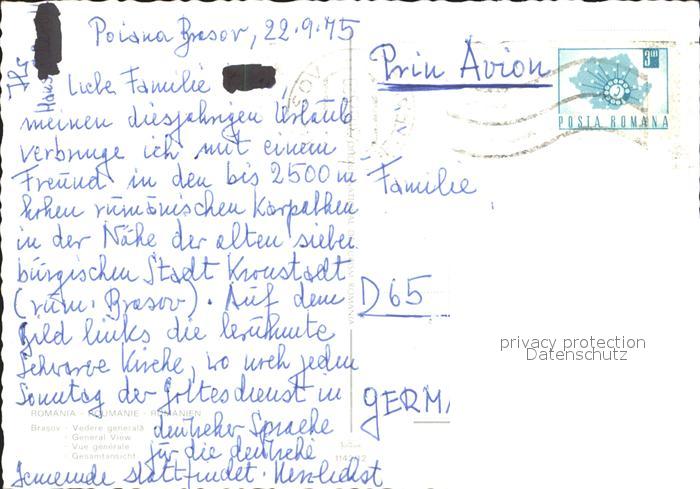 Poiana Brasov, 22.9.75
Liebe Familie
meinen diesjährigen Urlaub
verbringe ich mit einem
Freund in den bis 2500 m
hohen rumänischen Karpathen
in der Nähe der alten sieben
bürgischen Stadt Kronstadt
(rum. Brasov). Auf dem
Bild links die berühmte
Schwarze Kirche, wo noch jeden
Sonntag der Gottesdienst in
deutscher Sprache
für die deutsche
Gemeinde stattfindet. Herzlichst
Hans
ROMANIA - ROUMANIE - RUMÄNIEN
Brașov - Vedere generală
- General View
- Vue générale
- Gesamtansicht
Prin Avion
POSTA ROMANA
Familie
D 65
GERMA
privacy protection
Datenschutz